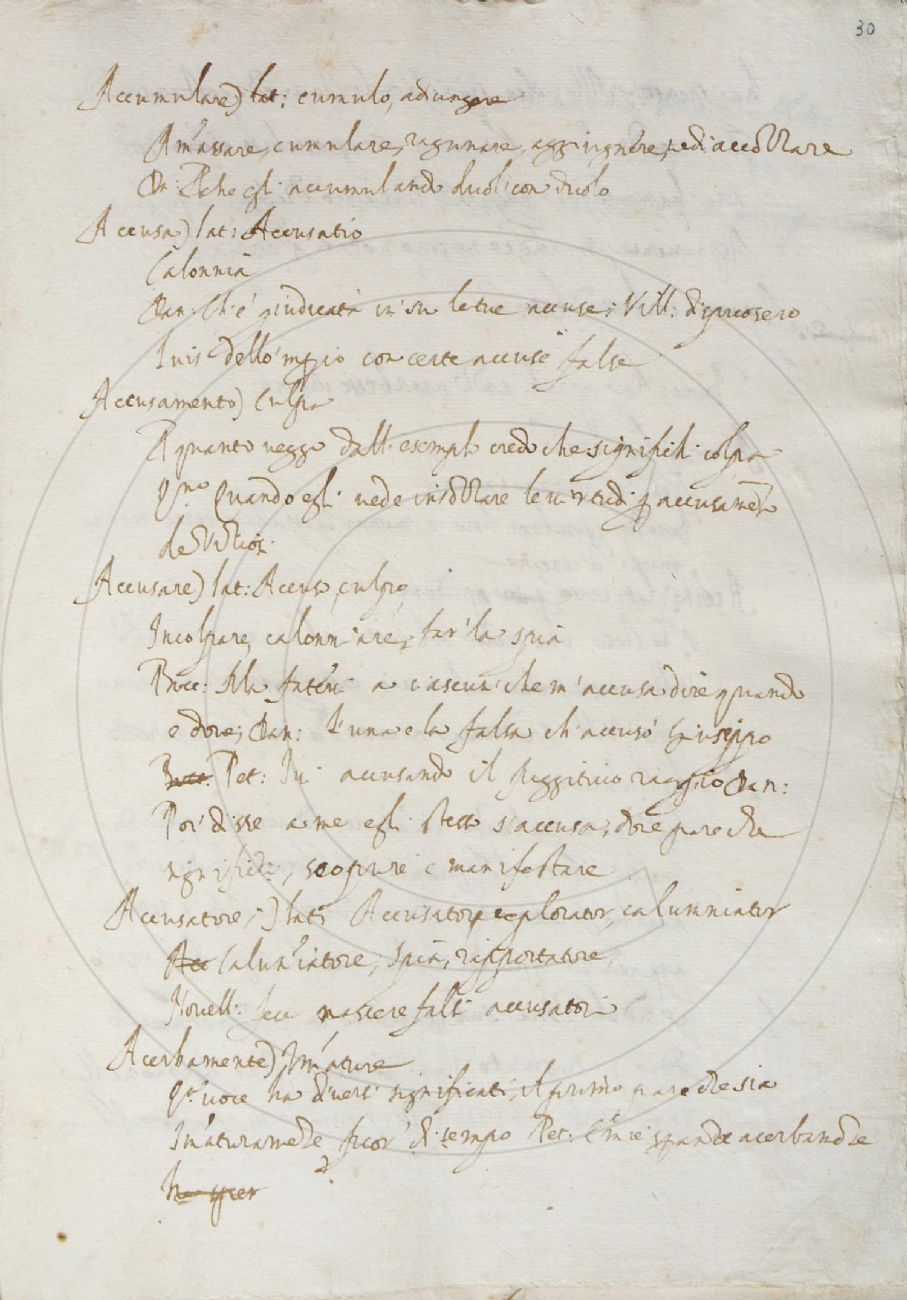 30
Accumulare) lat: cumulo, adiungere
Am̃assare, cumulare, ragunare, aggiugnere, vedi accoẟẟare
Dã: Pche egli accumulando duol con duolo
Accusa) lat: Accusatio
Calonnia
Dan: Ch'è giudicata in su le tue accuse; Vill: dispuosero
con certe accuse false
Accusamento) Culpa
A quanto veggo dall' esemplo credo che significhi colpa
Quando egli vede le virtudi accusamẽto
de
Accusare) lat: Accuso, culpo
Incolpare, calonniare, far la spia
Bocc: Ma a ciascun che m'accusa dire quando
e dove; Dan: L'una e la falsa ch'accusò Giuseppo
Bocc: Pet: Ivi accusando il fuggitivo raggio Dan:
Poi disse a me egli stesso s'accusa; dove pare che
significhi, scoprire e manifestare
Accusatore,) lat: Accusator, explorator, calumniator
Acc Calun̄iatore, spia, rapportatore
Novell: falsi accusatori
Acerbamente) Im̃ature
voce ha diversi significati, il primo pare che sia
fuor di tempo Pet: acerbamẽte